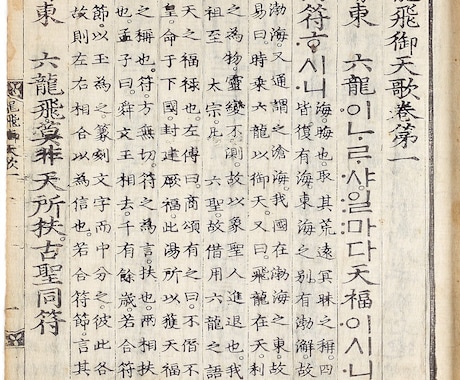 龍飛御天歌卷第一
東 六龍이〮ᄂᆞᄅᆞ샤〮일〯마다〮天福이〮시니〮
符ᄒᆞ〮시니〮
海。晦也。取其荒遠冥昧之稱。四
皆復有海。東海之別有渤澥。故
渤海。又通謂之滄海。我國在渤海之東。故
易曰時乘六龍以御天。又曰。飛龍在天。利
之為物。靈變不測。故以象聖人進退也。我
祖至 太宗。凡 六聖。故借用六龍之語
天之福祿也。左傳曰。商頌有之曰。不僭不
皇。命于下國。封建厥福。此湯所以獲天福
之稱也。符。方無切。符之為言。扶也。兩相扶
也。孟子曰。舜文王相去。千有餘歲。若合符
節。以玉為之。篆刻文字而中分之。彼此各
故則左右相合以為信也。若合符節。言其
東 六龍飛莫非天所扶。古聖同符